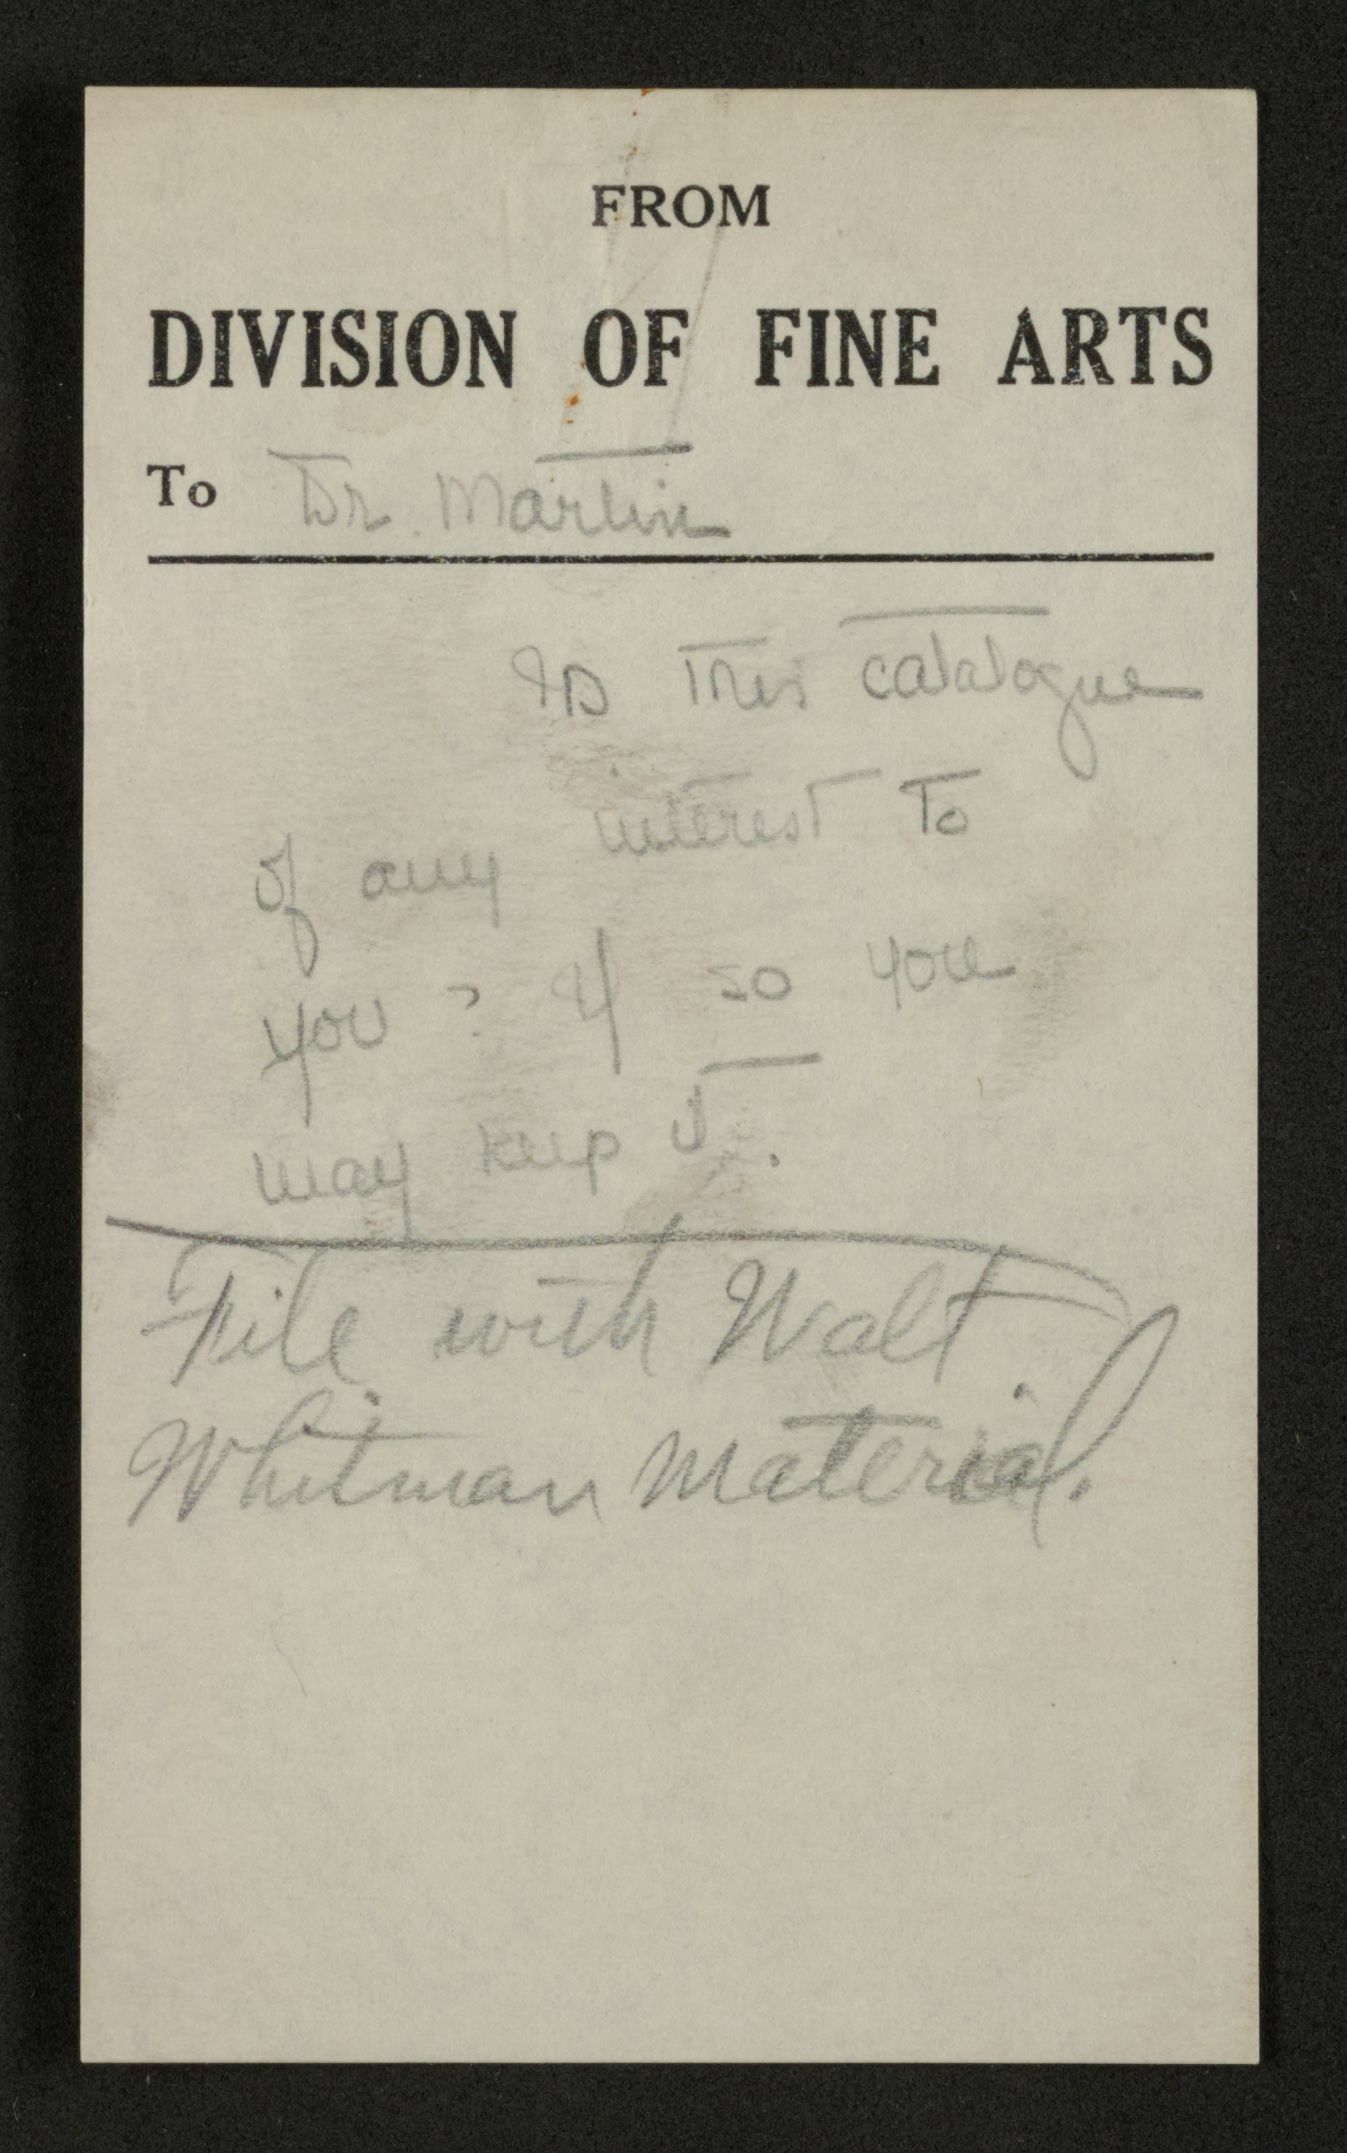 FROM
DIVISION OF FINE ARTS
To Dr. Martin
Is this catalogue
of any interest to
you? If so you
may keep it.
File with Walt
Whitman Material.